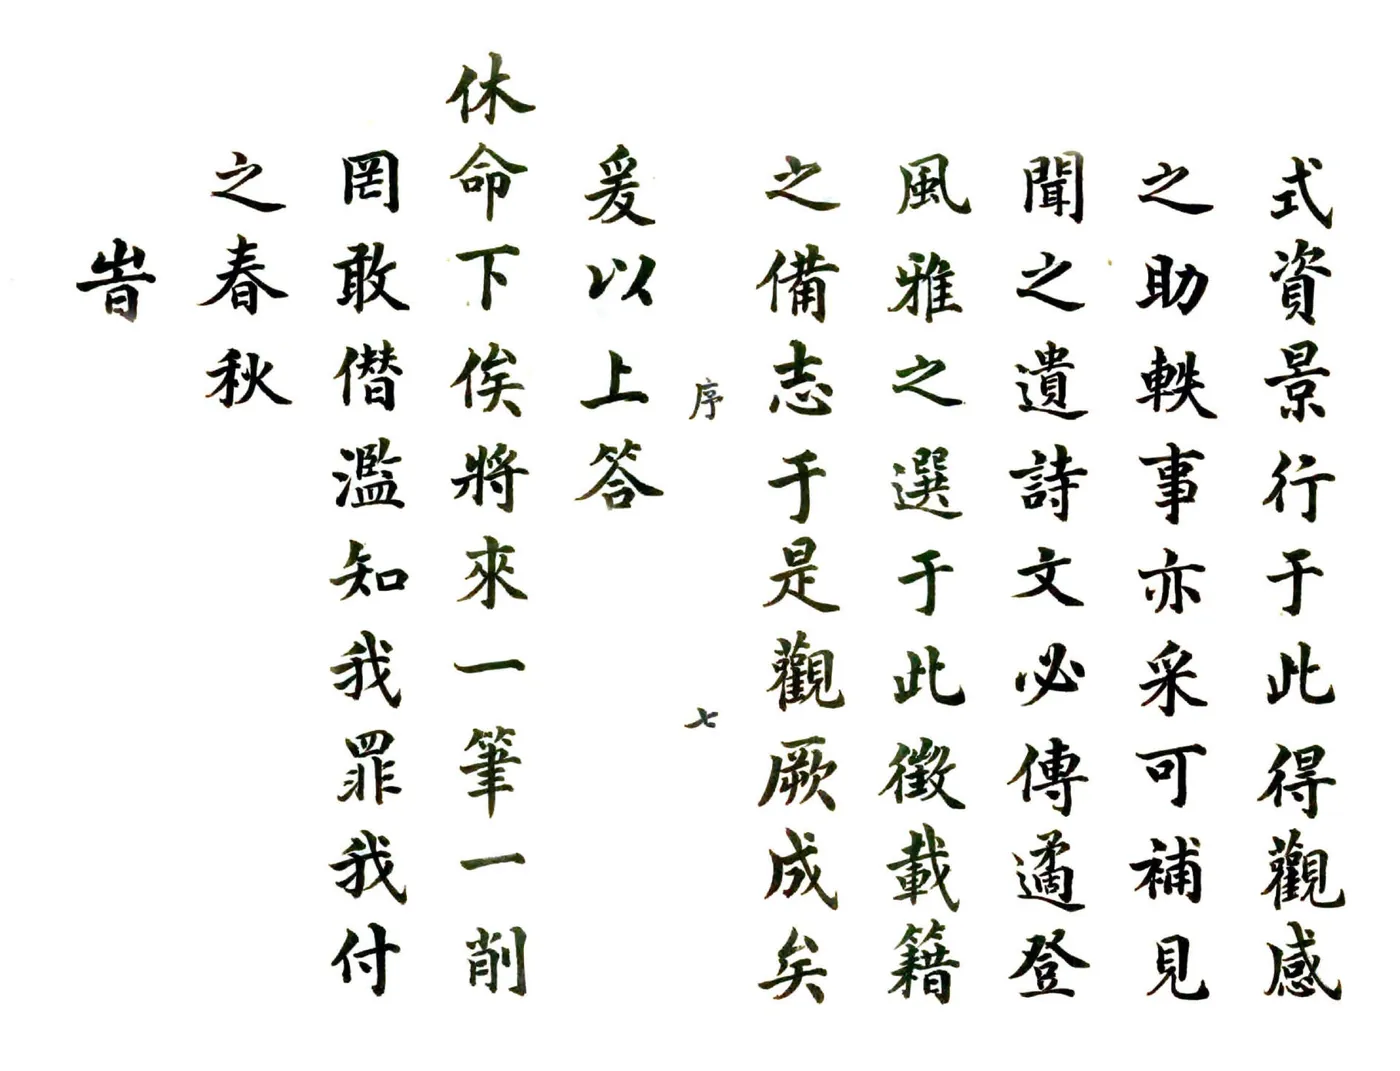 式資景行于此得觀感
之助軼事亦采可補見
聞之遺詩文必傳遹登
風雅之選于此徵載籍
之備志于是觀厥成矣
序 七
爰以上答
休命下俟將來一筆一削
罔敢僭濫知我罪我付
之春秋
旹